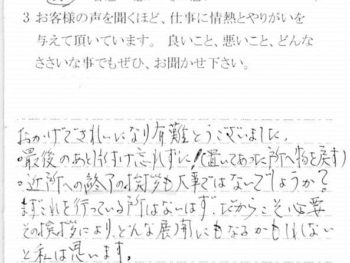 3 お客様の声を聞くほど、仕事に情熱とやりがいを
与えて頂いています。良いこと、悪いこと、どんな
ささいな事でもぜひ、お聞かせ下さい。
おかげできれいになり有難とうございました。
・最後のあと片付け忘れずに!(置いてあった所へ物を戻す)
・近所への終了の挨拶も大事ではないでしょうか?
まずこれを行っている所はないはず、だからこそ必要
その挨拶により、どんな展開にもなるかもしれない
と私は思います。